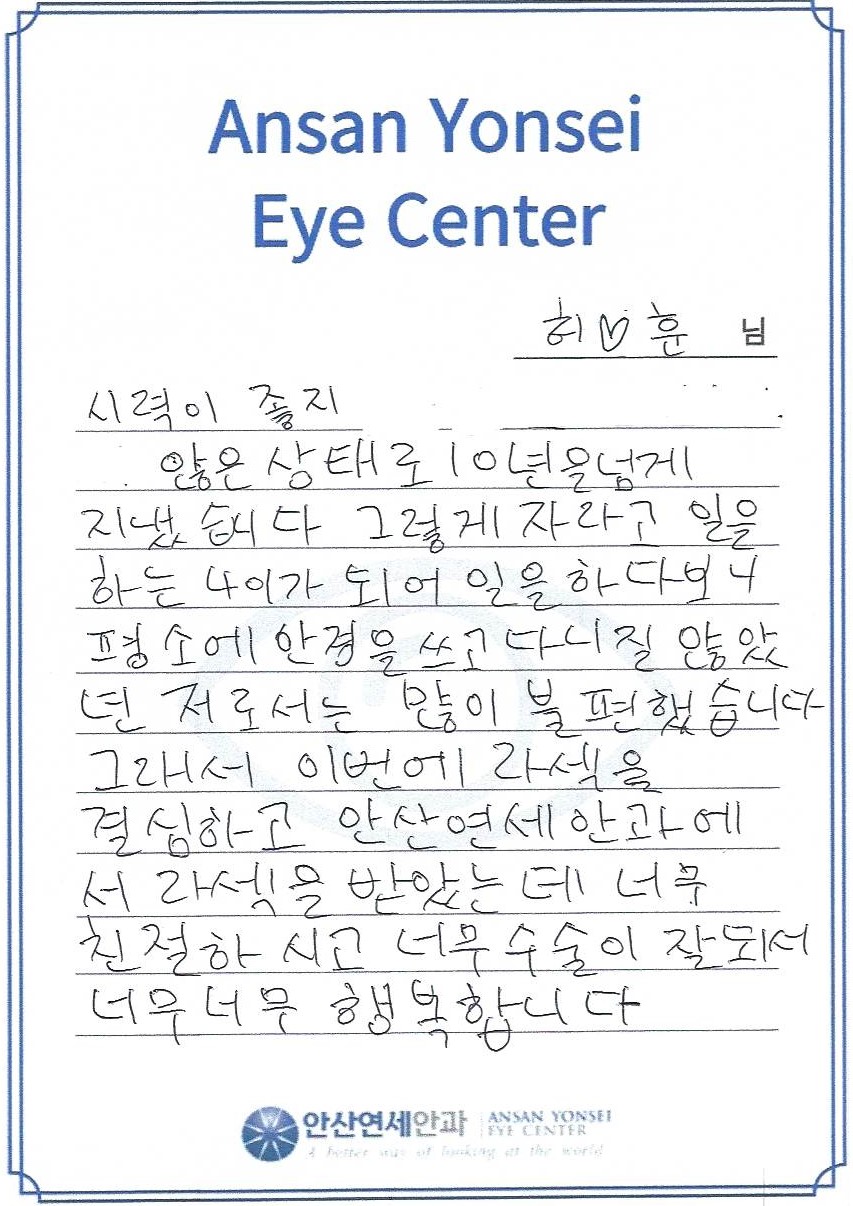 Ansan Yonsei
Eye Center
허♡훈 님
시력이 좋지
않은 상태로 10년을넘게
지냈습니다 그렇게 자라고 일을
하는 나이가 되어 일을하다보니
평소에 안경을 쓰고다니질 않았
던 저로서는 많이 불편했습니다
그래서 이번에 라섹을
결심하고 안산연세안과에
서 라섹을 받았는데 너무
친절하시고 너무수술이 잘되서
너무너무 행복합니다
안산연세안과 ANSAN YONSEI
EYE CENTER
A better way of looking at the world